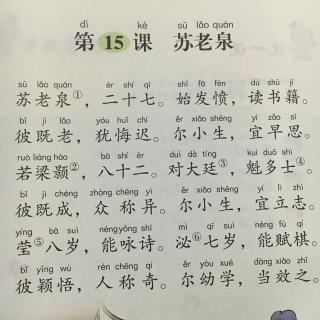 dì kè sū lǎo quán
第15课 苏老泉
sū lǎo quán èr shí qī shǐ fā fèn dú shū jí
苏老泉①，二十七。始发愤，读书籍。
bǐ jì lǎo yóu huǐ chí ěr xiǎo shēng yí zǎo sī
彼既老，犹悔迟。尔小生，宜早思。
ruò liáng hào bā shí èr duì dà tíng kuí duō shì
若梁灏②，八十二。对大廷③，魁多士④。
bǐ jì chéng zhòng chēng yì ěr xiǎo shēng yí lì zhì
彼既成，众称异。尔小生，宜立志。
yíng bā suì néng yǒng shī mì qī suì néng fù qí
莹⑤八岁，能咏诗。泌⑥七岁，能赋棋。
bǐ yǐng wù rén chēng qí ěr yòu xué dāng xiào zhī
彼颖悟，人称奇。尔幼学，当效之。